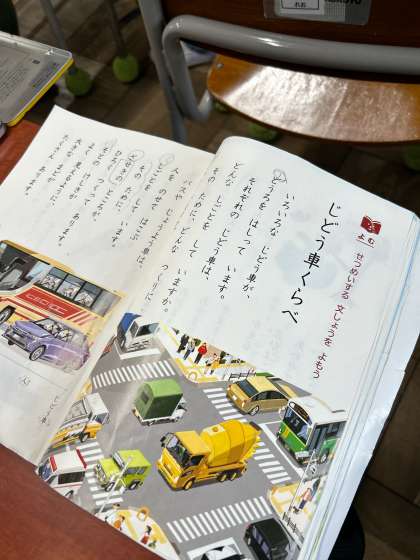 よむ
せつめいする 文しょうを よもう
じどう車くらべ
いろいろな じどう車が、
どうろを はしって います。
それぞれの じどう車は、
どんな しごとを して いますか。
その ために、どんな つくりに
バスや じょうよう車は、
人を のせて はこぶ
しごとを して います。
その ために、
そとの けしきが
よく 見えるように、
大きな まどが
たくさん あります。